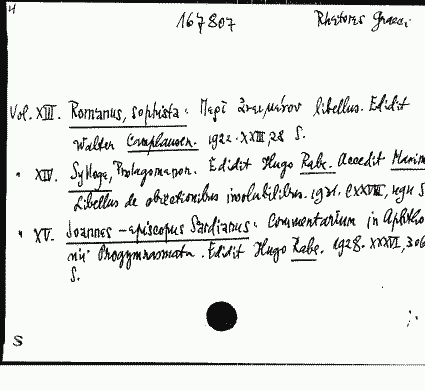 H
167807 Rhetores Graeci
Vol. XIII. Romanus, sophista. Περὶ ἀνειμένου libellus. Edidit
Walter Camphausen. 1922. XXIII, 28 S.
" XIV. Sylloge, Prolegomenon. Edidit Hugo Rabe. Accedit Maxim
Libellus de obiectionibus insolubilibus. 1931. CXXVIII, S
" XV. Joannes - episcopus Sardianus. Commentarium in Aphtho
nii Progymnasmata. Edidit Hugo Rabe. 1928. XXXVI, 306
S.
S